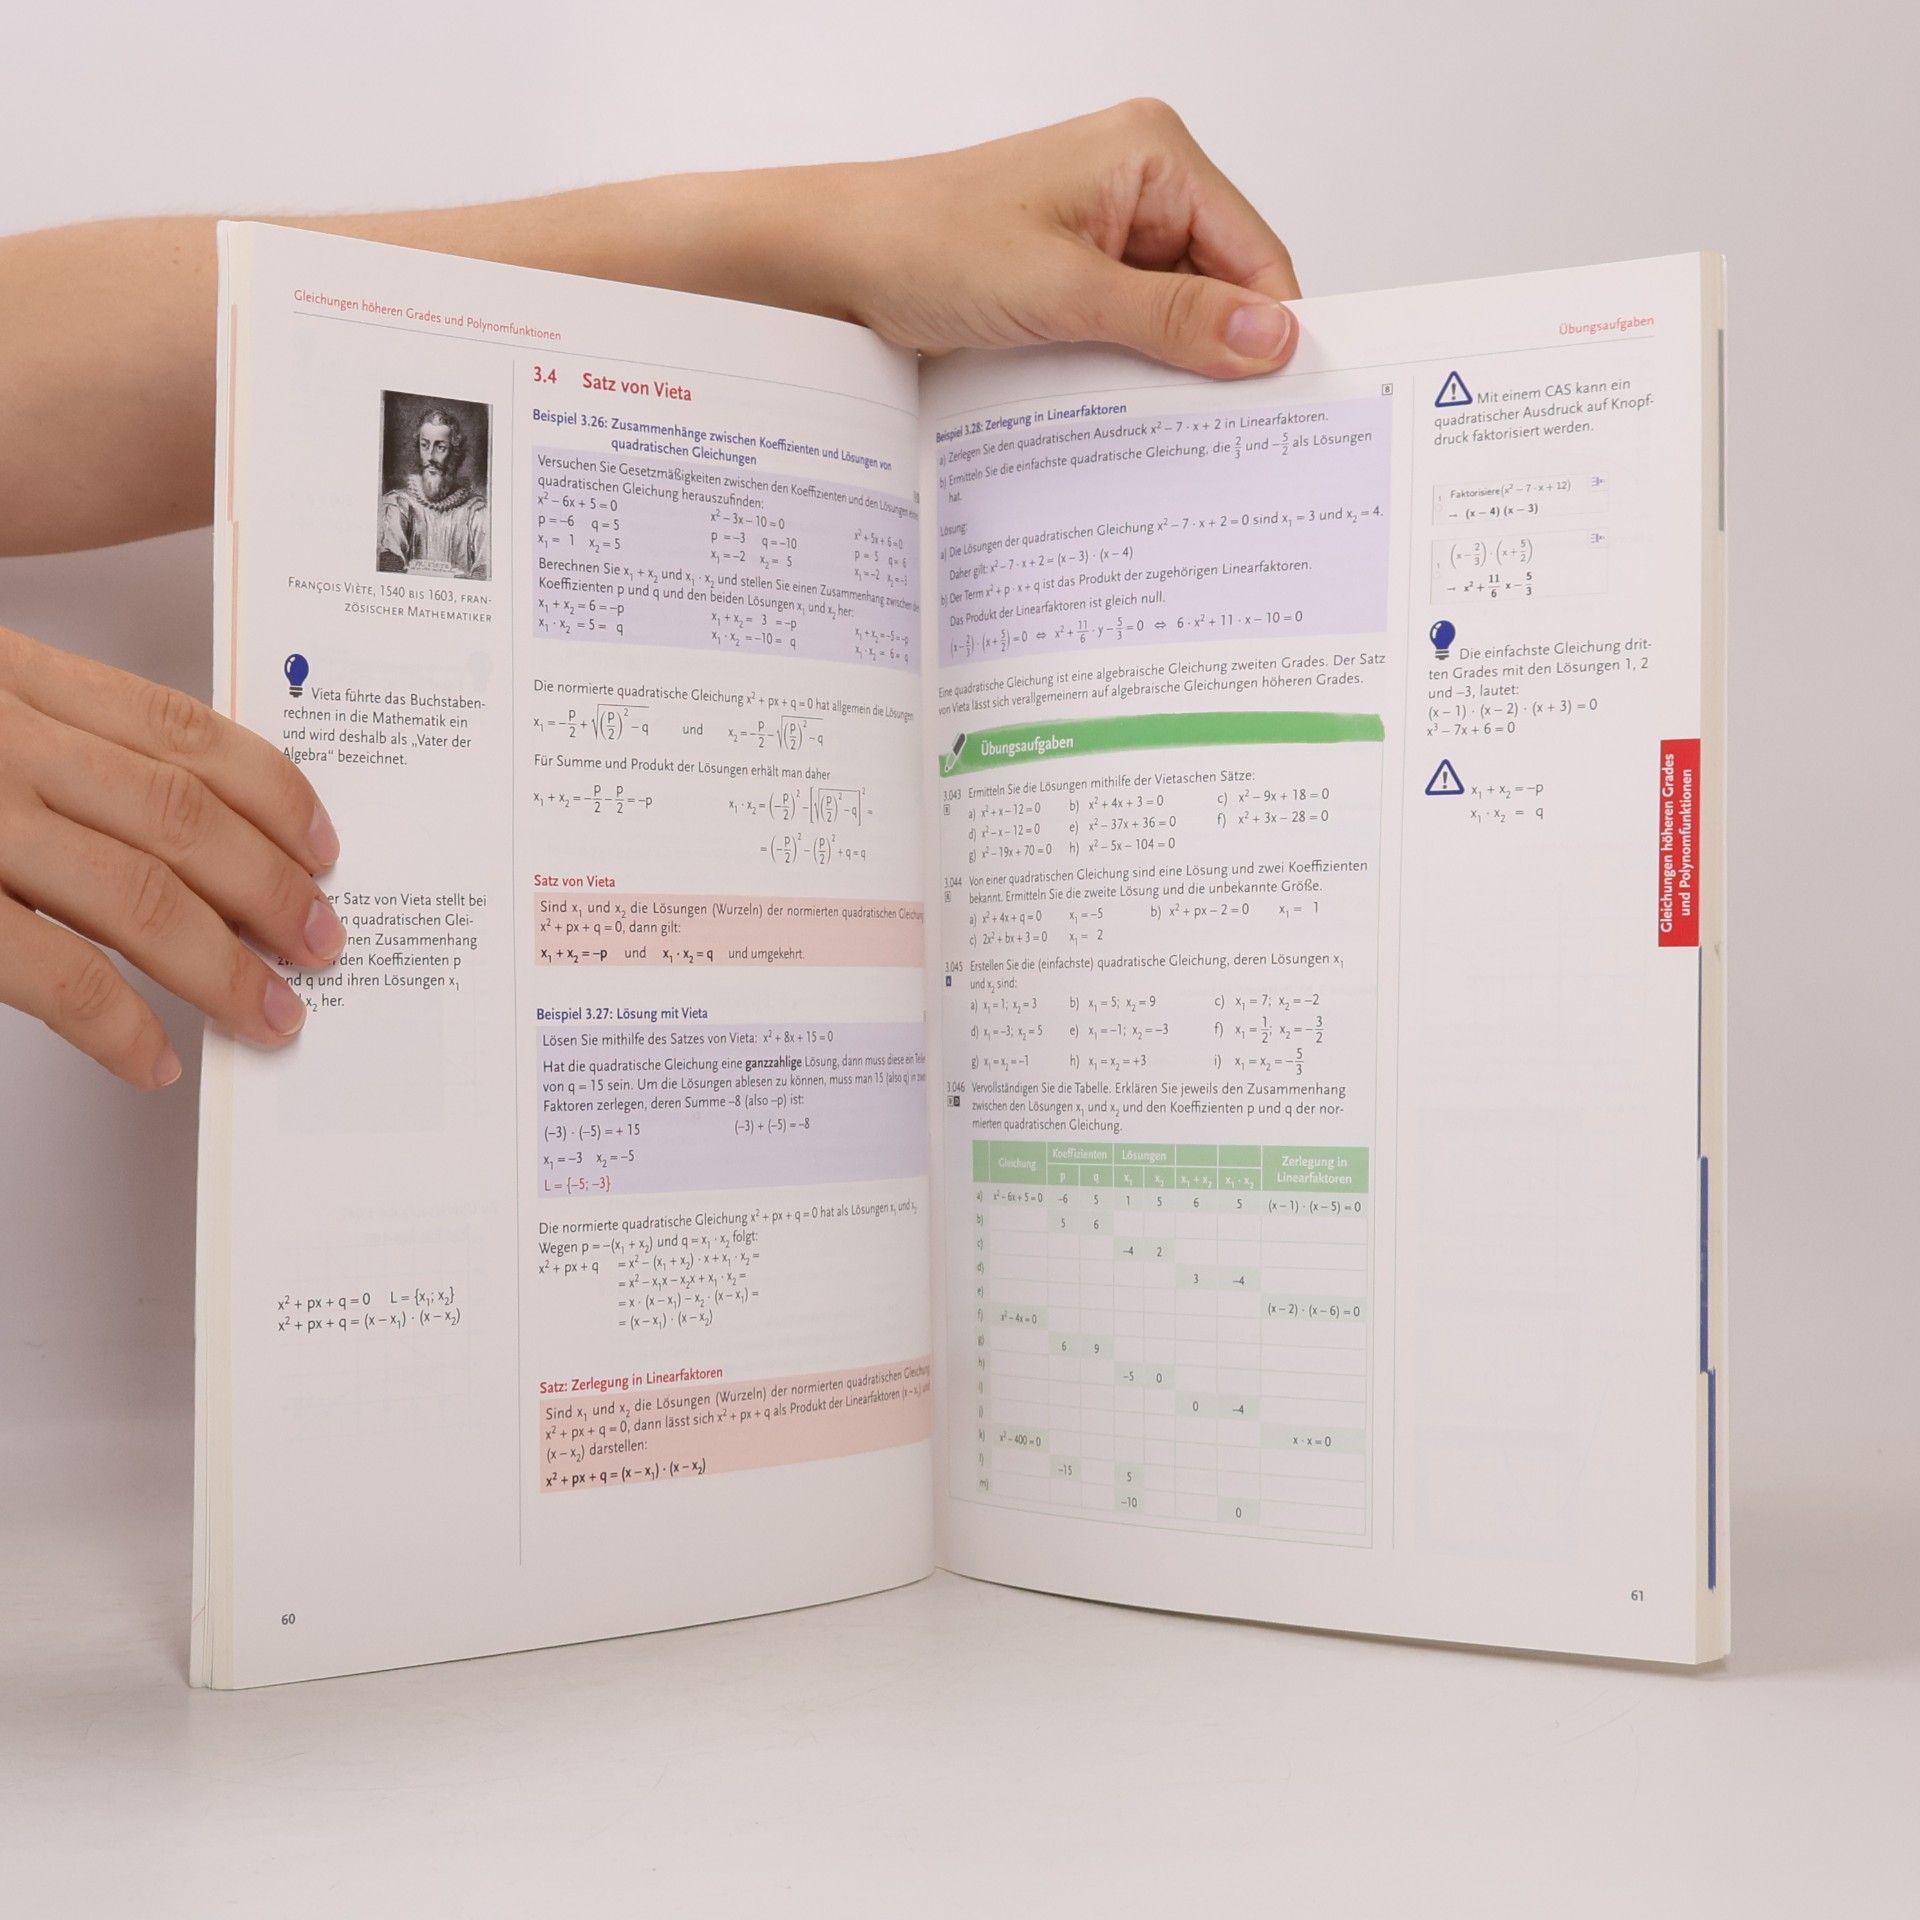 Gleichungen höheren Grades und Polynomfunktionen
FRANÇOIS VIÈTE, 1540 BIS 1603, FRAN-
ZÖSISCHER MATHEMATIKER
Vieta führte das Buchstaben-
rechnen in die Mathematik ein
und wird deshalb als „Vater der
Algebra“ bezeichnet.
er Satz von Vieta stellt bei
n quadratischen Glei-
nen Zusammenhang
den Koeffizienten p
nd q und ihren Lösungen x₁
x₂ her.
x² + px + q = 0 L = {x₁; x₂}
x² + px + q = (x − x₁) · (x − x₂)
60
3.4 Satz von Vieta
Beispiel 3.26: Zusammenhänge zwischen Koeffizienten und Lösungen von
quadratischen Gleichungen
Versuchen Sie Gesetzmäßigkeiten zwischen den Koeffizienten und den Lösungen
quadratischen Gleichung herauszufinden:
x² − 6x + 5 = 0 x² − 3x − 10 = 0 x² + 5x + 6 = 0
p = −6 q = 5 p = −3 q = −10 p = 5 q = 6
x₁ = 1 x₂ = 5 x₁ = −2 x₂ = 5 x₁ = −2 x₂ = −3
Berechnen Sie x₁ + x₂ und x₁ · x₂ und stellen Sie einen Zusammenhang zwischen
Koeffizienten p und q und den beiden Lösungen x₁ und x₂ her:
x₁ + x₂ = 6 = −p x₁ + x₂ = 3 = −p x₁ + x₂ = −5 = −p
x₁ · x₂ = 5 = q x₁ · x₂ = −10 = q x₁ · x₂ = 6 = q
Die normierte quadratische Gleichung x² + px + q = 0 hat allgemein die Lösungen
x₁ = −p/2 + √((p/2)² − q) und x₂ = −p/2 − √((p/2)² − q)
Für Summe und Produkt der Lösungen erhält man daher
x₁ + x₂ = −p/2 − p/2 = −p x₁ · x₂ = (−p/2)² − [√((p/2)² − q)]² =
= (−p/2)² − (p/2)² + q = q
Satz von Vieta
Sind x₁ und x₂ die Lösungen (Wurzeln) der normierten quadratischen Gleichung
x² + px + q = 0, dann gilt:
x₁ + x₂ = −p und x₁ · x₂ = q und umgekehrt.
Beispiel 3.27: Lösung mit Vieta
Lösen Sie mithilfe des Satzes von Vieta: x² + 8x + 15 = 0
Hat die quadratische Gleichung eine ganzzahlige Lösung, dann muss diese ein Teiler
von q = 15 sein. Um die Lösungen ablesen zu können, muss man 15 (also q) in zwei
Faktoren zerlegen, deren Summe −8 (also −p) ist:
(−3) · (−5) = + 15 (−3) + (−5) = −8
x₁ = −3 x₂ = −5
L = {−5; −3}
Die normierte quadratische Gleichung x² + px + q = 0 hat als Lösungen x₁ und x₂.
Wegen p = −(x₁ + x₂) und q = x₁ · x₂ folgt:
x² + px + q = x² − (x₁ + x₂) · x + x₁ · x₂ =
= x² − x₁x − x₂x + x₁ · x₂ =
= x · (x − x₁) − x₂ · (x − x₁) =
= (x − x₁) · (x − x₂)
Satz: Zerlegung in Linearfaktoren
Sind x₁ und x₂ die Lösungen (Wurzeln) der normierten quadratischen Gleichung
x² + px + q = 0, dann lässt sich x² + px + q als Produkt der Linearfaktoren (x − x₁) und
(x − x₂) darstellen:
x² + px + q = (x − x₁) · (x − x₂)
Übungsaufgaben
B
Beispiel 3.28: Zerlegung in Linearfaktoren
a) Zerlegen Sie den quadratischen Ausdruck x² − 7 · x + 2 in Linearfaktoren.
b) Ermitteln Sie die einfachste quadratische Gleichung, die 2/3 und −5/2 als Lösungen
hat.
Lösung:
a) Die Lösungen der quadratischen Gleichung x² − 7 · x + 2 = 0 sind x₁ = 3 und x₂ = 4.
Daher gilt: x² − 7 · x + 2 = (x − 3) · (x − 4)
b) Der Term x² + p · x + q ist das Produkt der zugehörigen Linearfaktoren.
Das Produkt der Linearfaktoren ist gleich null.
(x − 2/3) · (x + 5/2) = 0 ⇔ x² + 11/6 · y − 5/3 = 0 ⇔ 6 · x² + 11 · x − 10 = 0
Eine quadratische Gleichung ist eine algebraische Gleichung zweiten Grades. Der Satz
von Vieta lässt sich verallgemeinern auf algebraische Gleichungen höheren Grades.
Übungsaufgaben
3.043 Ermitteln Sie die Lösungen mithilfe der Vietaschen Sätze:
B a) x² + x − 12 = 0 b) x² + 4x + 3 = 0 c) x² − 9x + 18 = 0
d) x² − x − 12 = 0 e) x² − 37x + 36 = 0 f) x² + 3x − 28 = 0
g) x² − 19x + 70 = 0 h) x² − 5x − 104 = 0
3.044 Von einer quadratischen Gleichung sind eine Lösung und zwei Koeffizienten
bekannt. Ermitteln Sie die zweite Lösung und die unbekannte Größe.
a) x² + 4x + q = 0 x₁ = −5 b) x² + px − 2 = 0 x₁ = 1
c) 2x² + bx + 3 = 0 x₁ = 2
3.045 Erstellen Sie die (einfachste) quadratische Gleichung, deren Lösungen x₁
A und x₂ sind:
a) x₁ = 1; x₂ = 3 b) x₁ = 5; x₂ = 9 c) x₁ = 7; x₂ = −2
d) x₁ = −3; x₂ = 5 e) x₁ = −1; x₂ = −3 f) x₁ = 1/2; x₂ = −3/2
g) x₁ = x₂ = −1 h) x₁ = x₂ = +3 i) x₁ = x₂ = −5/3
3.046 Vervollständigen Sie die Tabelle. Erklären Sie jeweils den Zusammenhang
zwischen den Lösungen x₁ und x₂ und den Koeffizienten p und q der nor-
mierten quadratischen Gleichung.
Gleichung Koeffizienten Lösungen Zerlegung in
p q x₁ x₂ x₁ + x₂ x₁ · x₂ Linearfaktoren
a) x² − 6x + 5 = 0 −6 5 1 5 6 5 (x − 1) · (x − 5) = 0
b) 5 6
c) −4 2
d) 3 −4
e) (x − 2) · (x − 6) = 0
f) x² − 4x = 0
g) 6 9
h) −5 0
i) 0 −4
j) x · x = 0
k) x² − 400 = 0
l) −15 5
m) −10 0
Mit einem CAS kann ein
quadratischer Ausdruck auf Knopf-
druck faktorisiert werden.
Faktorisiere(x² − 7 · x + 12)
→ (x − 4) (x − 3)
(x − 2/3) · (x + 5/2)
→ x² + 11/6 x − 5/3
Die einfachste Gleichung drit-
ten Grades mit den Lösungen 1, 2
und −3, lautet:
(x − 1) · (x − 2) · (x + 3) = 0
x³ − 7x + 6 = 0
x₁ + x₂ = −p
x₁ · x₂ = q
Gleichungen höheren Grades
und Polynomfunktionen
61